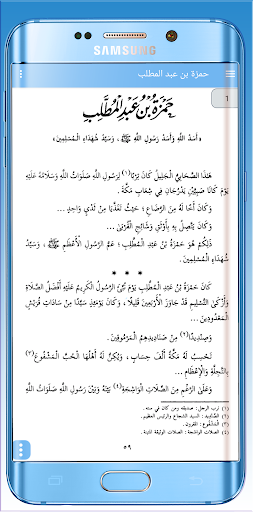 SAMSUNG
حمزة بن عبد المطلب
٦
حَمْزَةُ بْنُ عَبْدِ المُطَّلِبِ
«أَسَدُ اللَّهِ وَأَسَدُ رَسُولِ اللَّهِ ﷺ ، وَسَيِّدُ شُهَدَاءِ المُسْلِمِينَ»
هَذَا الصَّحَابِيُّ الجَلِيلُ كَانَ تِرْبًا(١) لِرَسُولِ اللَّهِ صَلَوَاتُ اللَّهِ وَسَلَامُهُ عَلَيْهِ
يَوْمَ كَانَا صَبِيَّيْنِ يَدْرُجَانِ فِي شِعَابِ مَكَّةَ .
وَكَانَ أَخًا لَهُ مِنَ الرَّضَاعِ ؛ حَيْثُ تَغَذَّيَا مِنْ ثَدْيٍ وَاحِدٍ ...
وَكَانَ يَتَّصِلُ بِهِ بِأَوْثَقِ وَشَائِجِ القُرْبَى ...
ذَلِكُمْ هُوَ حَمْزَةُ بْنُ عَبْدِ المُطَّلِبِ ؛ عَمُّ الرَّسُولِ الأَعْظَمِ ﷺ ، وَسَيِّدُ
شُهَدَاءِ المُسْلِمِينَ .
* * *
كَانَ حَمْزَةُ بْنُ عَبْدِ المُطَّلِبِ يَوْمَ نُبِّئَ الرَّسُولُ الكَرِيمُ عَلَيْهِ أَفْضَلُ الصَّلَاةِ
وَأَزْكَى التَّسْلِيمِ قَدْ جَاوَزَ الأَرْبَعِينَ قَلِيلًا ، وَكَانَ يَوْمَئِذٍ سَيِّدًا مِنْ سَادَاتِ قُرَيْشٍ
المَعْدُودِينَ ...
وَصِنْدِيدًا(٢) مِنْ صَنَادِيدِهِمُ المَرْمُوقِينَ ...
تَحْسِبُ لَهُ مَكَّةُ أَلْفَ حِسَابٍ ، وَيُكِنُّ لَهُ أَهْلُهَا الحُبَّ المَشْفُوعَ(٣)
بِالتَّجِلَّةِ وَالإِعْظَامِ ...
وَعَلَى الرَّغْمِ مِنَ الصِّلَاتِ الوَاشِجَةِ(٤) بَيْنَهُ وَبَيْنَ رَسُولِ اللَّهِ صَلَوَاتُ اللَّهِ
(١) ترب الرجل: صديقه ومن كان في سنه .
(٢) الصنديد: السيد الشجاع والرئيس العظيم.
(٣) المشفوع: المقرون.
(٤) الصلات الواشجة: الصلات الوثيقة الثابتة .
٥٩